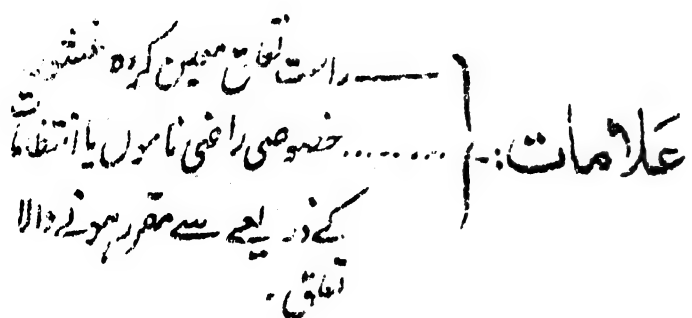 علامات:-
——— راست تعلق معین کردہ
........ خصوصی راضی ناموں یا انتظامات
کے ذریعے سے مقرر ہونے والا
تعلق۔